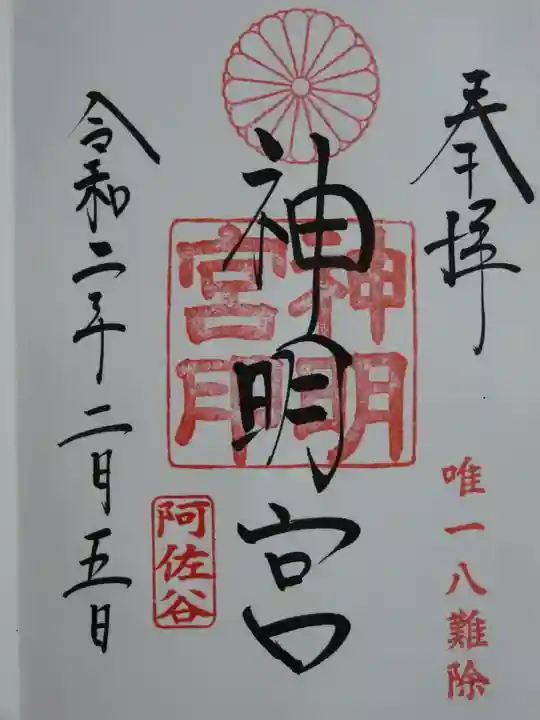 奉拝
唯一八難除
神明宮
神明
宮印
阿佐谷
令和二年二月五日